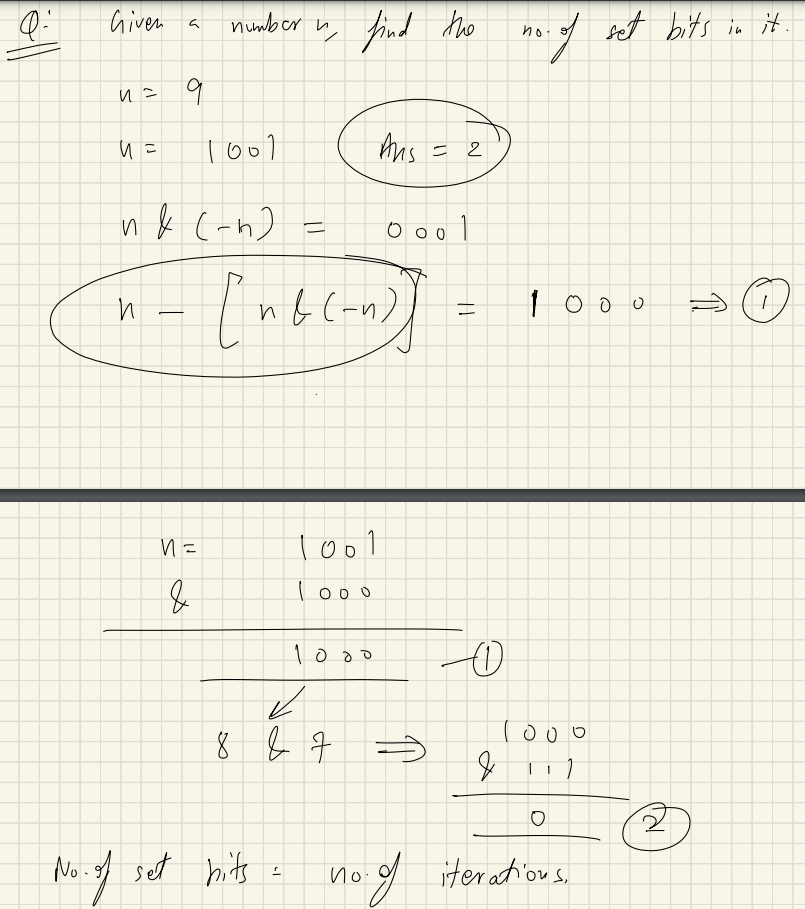 Q: Given a number n, find the no. of set bits in it.
n = 9
n = 1001 Ans = 2
n & (-n) = 0001
n - [n & (-n)] = 1000 ⇒ 1
n = 1001
& 1000
1000 - 1
8 & 7 ⇒ 1000
& 111
0 2
No. of set bits = no. of iterations.